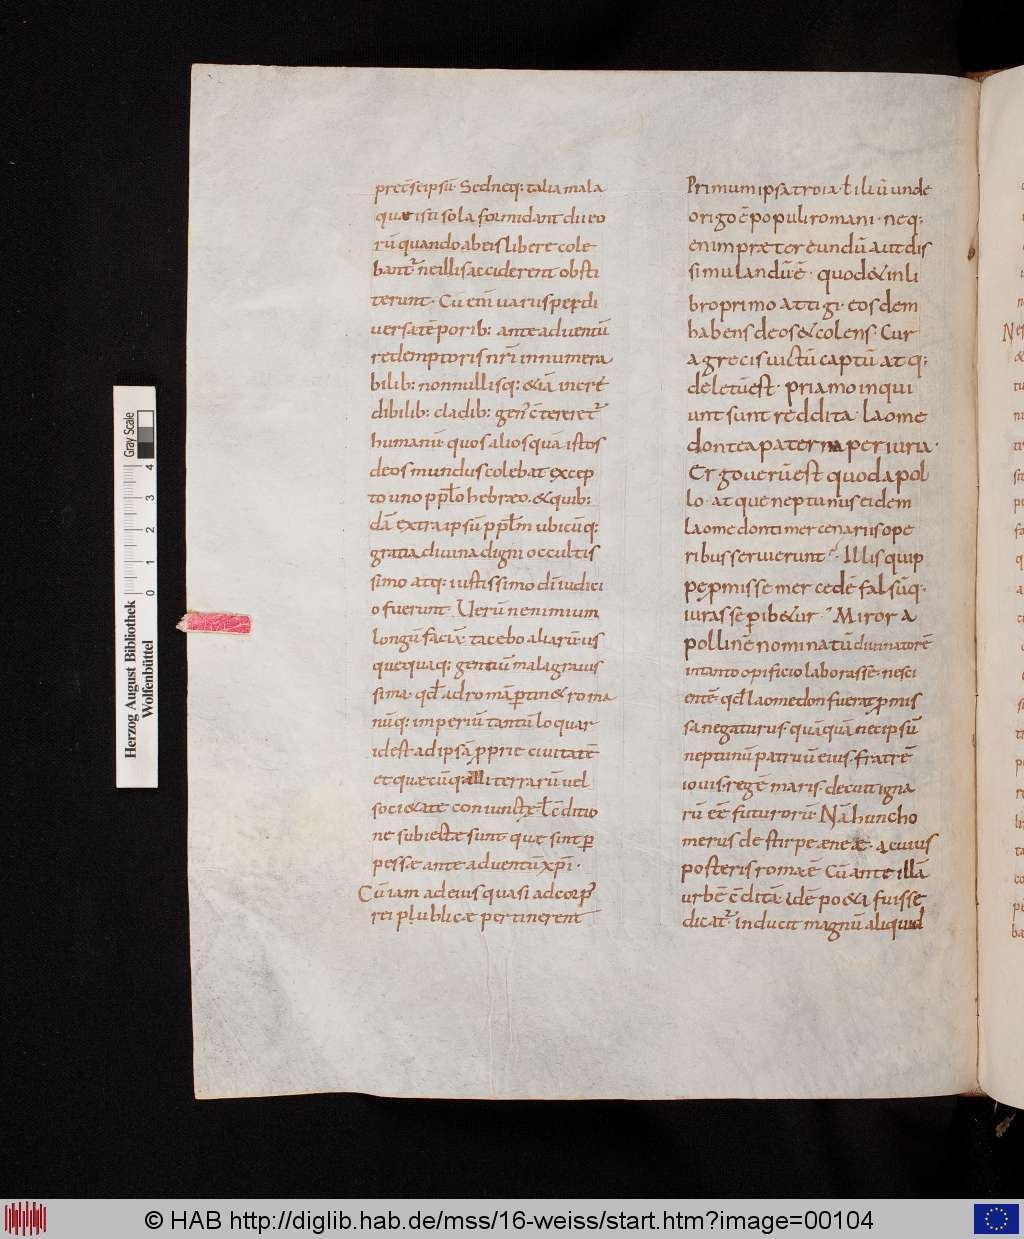 precēseipsū. Sedneq: talia mala
quae isti sola formidant dii eo
rū quando ab eis libere cole
bantᷣ ne illis acciderent obsti
terunt. Cū eni uariis perdi
uersa tēporib: ante aduentū
redemptoris nr̄i innumera
bilib: nonnullisq: &iā incre
dibilib: cladib: gen' c̄tereretᷣ
humanū quos alios quā istos
deos mundus colebat excep
to uno pp̄lo hebræo. & quib:
dā extra ipsū pp̄lm ubicūq:
gratia diuina digni occultis
simo atq: iustissimo dī iudici
o fuerunt. Uerū ne nimium
longū faciā tacebo aliarū us
quequaq: gentiū mala grauis
sima. qđ ad romā ꝑtin& roma
nūq: imperiū tantū loquar
id est ad ipsā ꝓprie ciuitatē
et quæcūq: illi terrarū uel
soci&ate coniunctę ł c̄ditio
ne subiectæ sunt quæ sint ꝑ
pessæ ante aduentū xp̄i.
Cū iam ad eius quasi ad corpꝰ
rei publicæ pertinerent
Primum ipsa troia ł iliū unde
origo ē populi romani. neq:
enim prætereundū aut dis
simulandū ē. quod & in li
bro primo attigi. eosdem
habens deos & colens. Cur
a grecis uictū captū atq:
deletū est. priamo inqui
unt sunt reddita laome
dontea paterna periuria.
Ergo uerū est quod apol
lo. atque neptunus eidem
laomedonti mercenariis ope
ribus seruierunt. Illis quip
pe ꝓmisse mercedē falsūq.
iurasse ꝑhib&ur. Miror a
pollinē nominatū diuinatorē
in tanto opificio laborasse. nesci
entē. qđ laomedon fuerat ꝓmis
sa negaturus. quāquā nec ipsū
neptunū patruū eius. fratrē
iouis. regē maris. decuit igna
rū eē futurorū. Nā hunc ho
merus de stirpe æneæ. a cuius
posteris roma ē Cū ante illā
urbē c̄ditā idē po&a fuisse
dicatᷣ. inducit magnū aliquid
Herzog August Bibliothek
Wolfenbüttel
0 1 2 3 4
Gray Scale
© HAB http://diglib.hab.de/mss/16-weiss/start.htm?image=00104